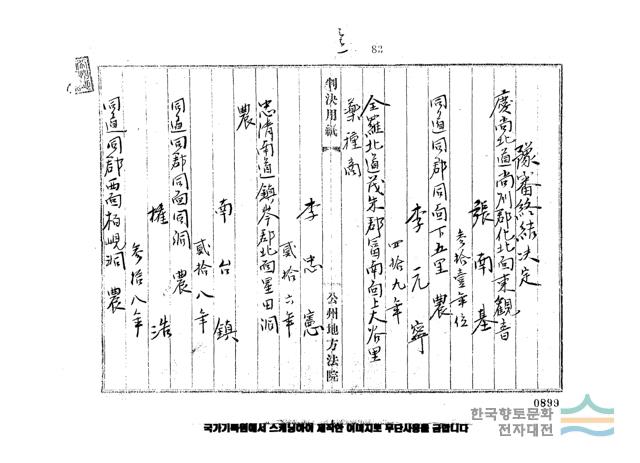 82
豫審終結決定
慶尚北道尚州郡化北面東觀音
張南基
參拾壹年位
同道同郡同面下五里 農
李元寧
四拾九年
全羅北道茂朱郡富南面上大谷里
藥種商
判決用紙
公州地方法院
李忠憲
貳拾六年
忠淸南道鎭岑郡北面星田洞
農
南台鎭
貳拾八年
同道同郡同面同洞 農
權浩
參拾八年
同道同郡西面栢峴洞 農
0899
한국향토문화
전자대전
국가기록원에서 스캐닝하여 제작한 이미지로 무단사용을 금합니다